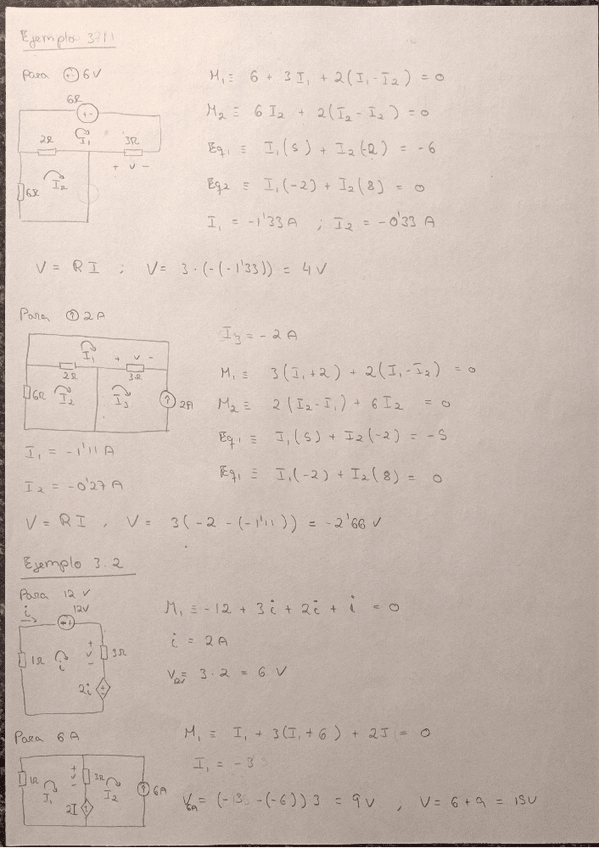 Ejemplo 3.1
Para 6V
6Ω
+ -
I₁
2Ω 3Ω
+ v -
6Ω I₂
M₁ ≡ 6 + 3I₁ + 2(I₁-I₂) = 0
M₂ ≡ 6I₂ + 2(I₂-I₂) = 0
Eq₁ ≡ I₁(5) + I₂(-2) = -6
Eq₂ ≡ I₁(-2) + I₂(8) = 0
I₁ = -1'33 A ; I₂ = -0'33 A
V = RI ; V = 3·(-(-1'33)) = 4V
Para ↑ 2A
I₁ + v -
2Ω 3Ω
6Ω I₂ I₃ ↑ 2A
I₁ = -1'11 A
I₂ = -0'27 A
I₃ = -2 A
M₁ ≡ 3(I₁+2) + 2(I₁-I₂) = 0
M₂ ≡ 2(I₂-I₁) + 6I₂ = 0
Eq₁ ≡ I₁(5) + I₂(-2) = -5
Eq₁ ≡ I₁(-2) + I₂(8) = 0
V = RI , V = 3(-2 - (-1'11)) = -2'66 V
Ejemplo 3.2
Para 12 V
i 12V
1Ω i + v - 3Ω
2i
M₁ ≡ -12 + 3i + 2i + i = 0
i = 2A
3·2 = 6 V
Para 6A
1Ω I₁ + v - 3Ω I₂ ↑ 6A
2I
M₁ ≡ I₁ + 3(I₁+6) + 2I = 0
I₁ = -3
-(-6)) 3 = 9V , V = 6+9 = 15V